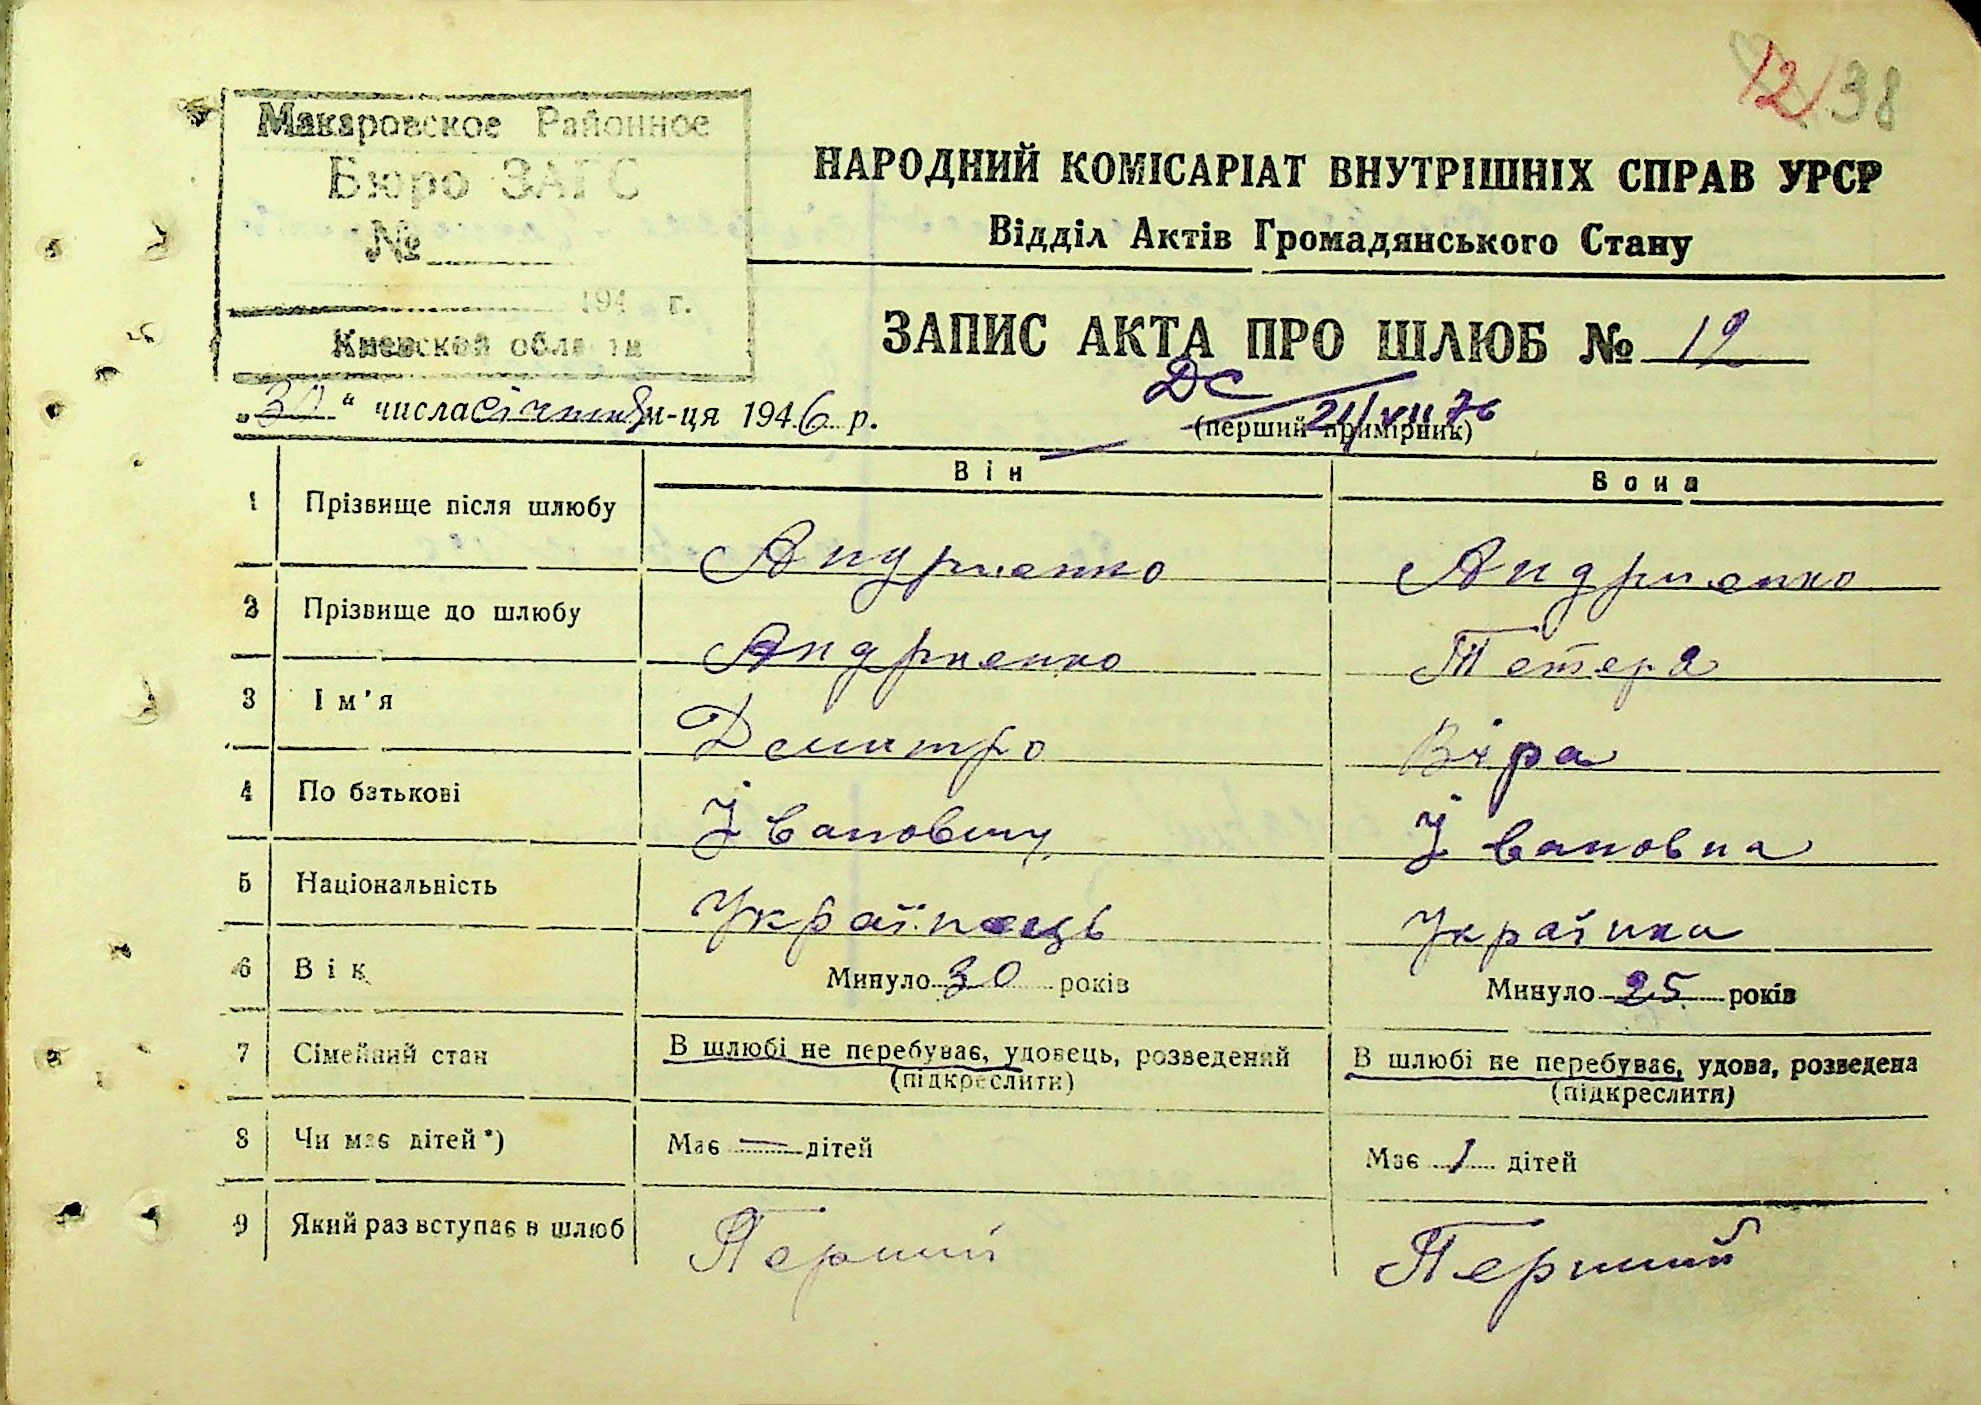 12 38
Макаровское Районное
Бюро ЗАГС
№
194 г.
Киевской области
НАРОДНИЙ КОМІСАРІАТ ВНУТРІШНІХ СПРАВ УРСР
Відділ Актів Громадянського Стану
ЗАПИС АКТА ПРО ШЛЮБ № 12
ДС
21/XII 76
„30“ числа січня м-ця 1946 р.
(перший примірник)
Він Вона
1 Прізвище після шлюбу Андриенко Андриенко
2 Прізвище до шлюбу Андриенко Тетера
3 Ім'я Демитро Віра
4 По батькові Івановичу Івановна
5 Національність Українець Українка
6 Вік Минуло 30 років Минуло 25 років
7 Сімейний стан В шлюбі не перебуває, удовець, розведений В шлюбі не перебуває, удова, розведена
(підкреслити) (підкреслити)
8 Чи має дітей*) Має — дітей Має 1 дітей
9 Який раз вступає в шлюб Перший Перший